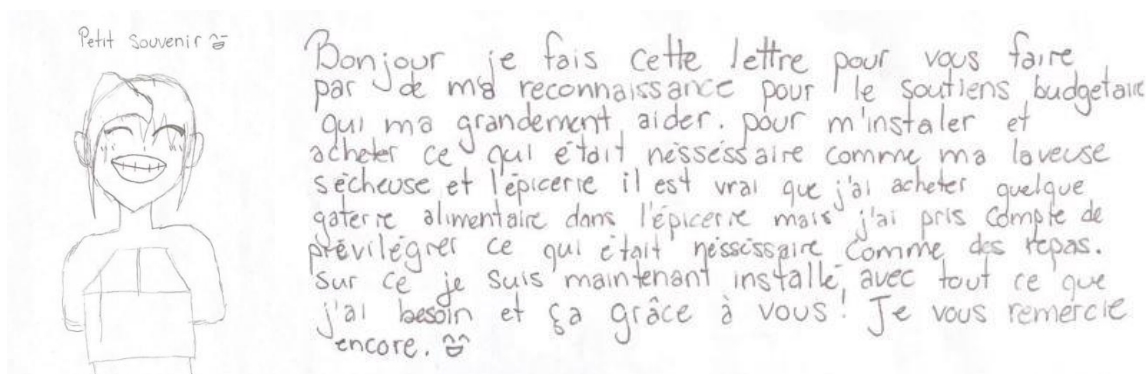 Petit Souvenir
Bonjour je fais cette lettre pour vous faire
par de ma reconnaissance pour le soutiens budgetaire
qui ma grandement aider. pour m'instaler et
acheter ce qui était nésséssaire comme ma laveuse
sécheuse et l'épicerie il est vrai que j'ai acheter quelque
gaterre alimentaire dans l'épicerie mais j'ai pris compte de
prévilégrer ce qui était néssessaire comme des repas.
Sur ce je suis maintenant installé, avec tout ce que
j'ai besoin et ça grâce à vous! Je vous remercie
encore.